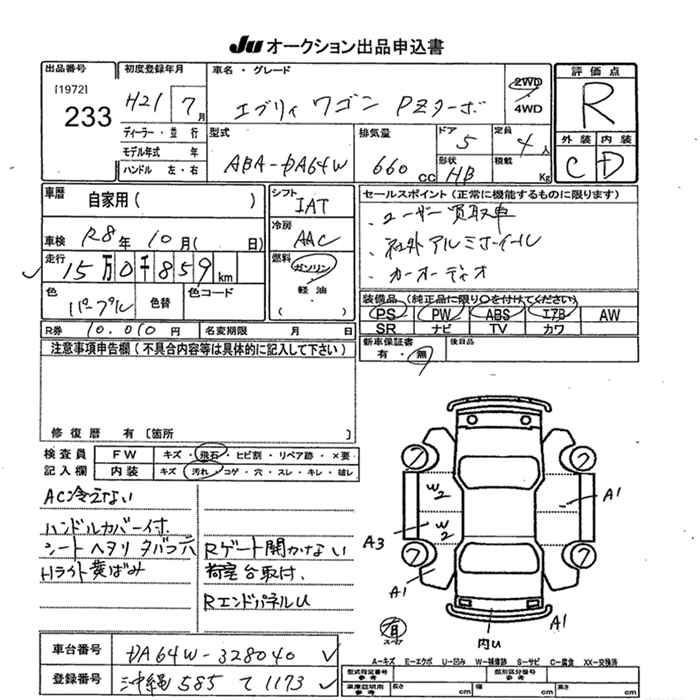 JU オークション出品申込書
出品番号
[1972]
233
初度登録年月
H21 7月
ディーラー・並行
モデル年式 年
ハンドル 左・右
車名・グレード
エブリィ ワゴン PZターボ
2WD
4WD
型式
ABA-DA64W
排気量
660 CC
ドア 5
形状 HB
定員 4人
積載 Kg
評価点
R
外装 内装
C D
車歴
自家用( )
車検 R8年 10月( 日)
走行
15万0千859km
色
パープル
色替
色コード
R券 10,010円
名変期限 月 日
シフト
IAT
冷房
AAC
燃料
ガソリン
・
軽油
( )
セールスポイント(正常に機能するものに限ります)
・ユーザー買取車
・社外アルミホイール
・カーオーディオ
装備品(純正品に限り○を付けてください)
PS PW ABS エアB AW
SR ナビ TV カワ
新車保証書
有・無
後日品
注意事項申告欄(不具合内容等は具体的に記入して下さい)
修復歴 有[箇所 ]
検査員
記入欄
FW キズ・飛石・ヒビ割・リペア跡・×要
内装 キズ・汚れ・コゲ・穴・スレ・キレ・破レ
AC冷えない
ハンドルカバー付
シートヘタリ タバコ穴
Hライト黄ばみ
Rゲート開かない
荷室台取付.
RエンドパネルU
7
7
7
7
W2
W2
A1
A3
A1
A1
内U
有
車台番号 DA64W-328040
登録番号 沖縄 585 て 1173
A-キズ E-エクボ U-凹み W-補修跡 S-サビ C-腐食 XX-交換済
型式指定番号
参考
類別区分番号
参考
車庫証明用
参考
長さ cm
幅 cm
高さ cm